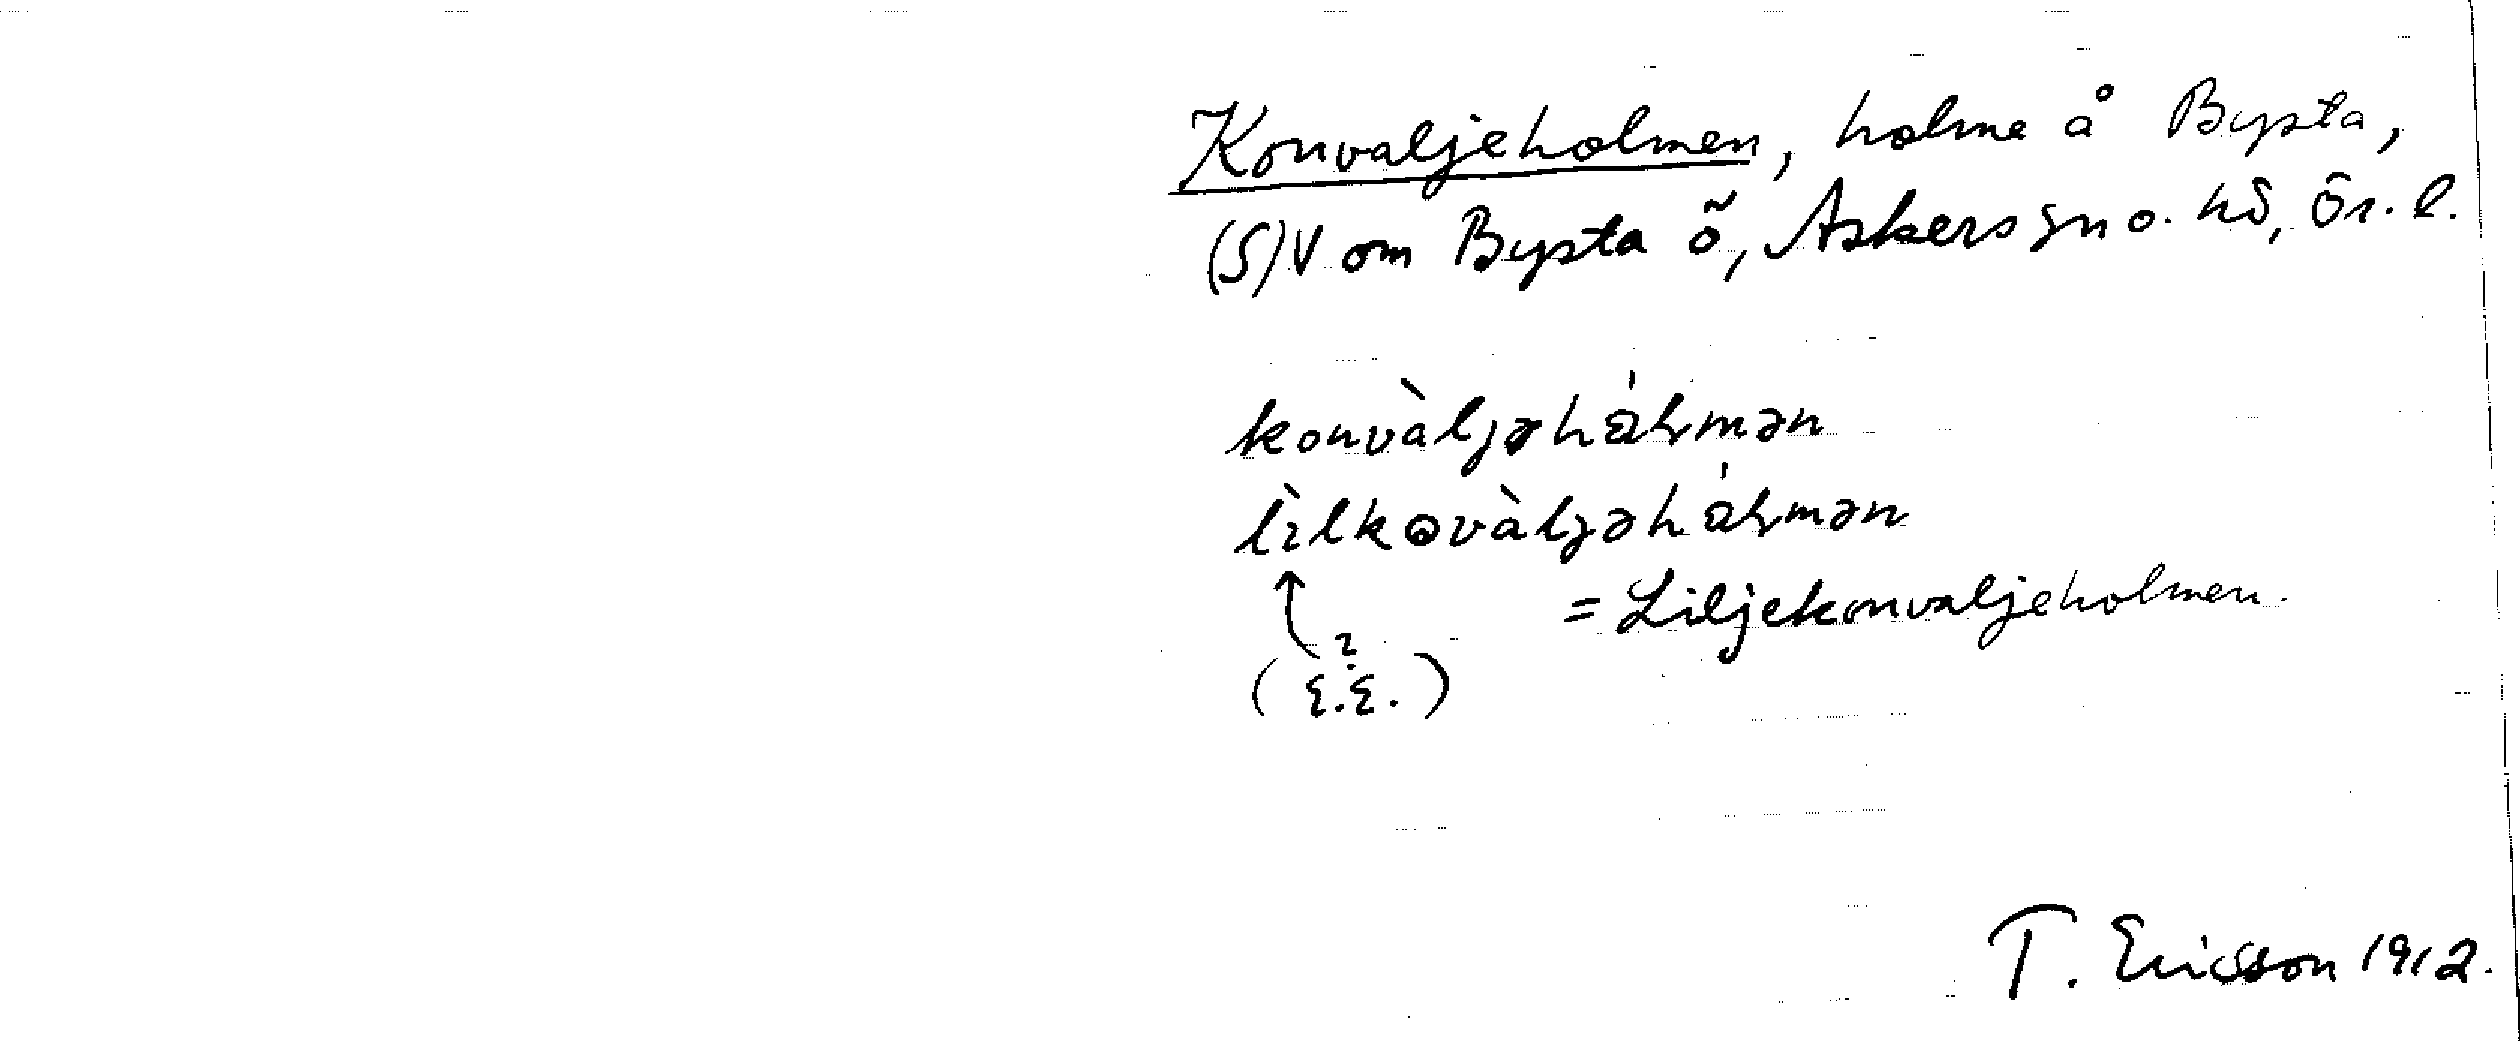 Konvaljeholmen, holme å Bysta,
(S)V om Bysta ö, Askers sn o. hd, Ör. l.
konvàljəhålmən
lìlkɷvàljəhålmən
= Liljekonvaljeholmen.
?
( ξ.ξ. )
T. Ericsson 1912.